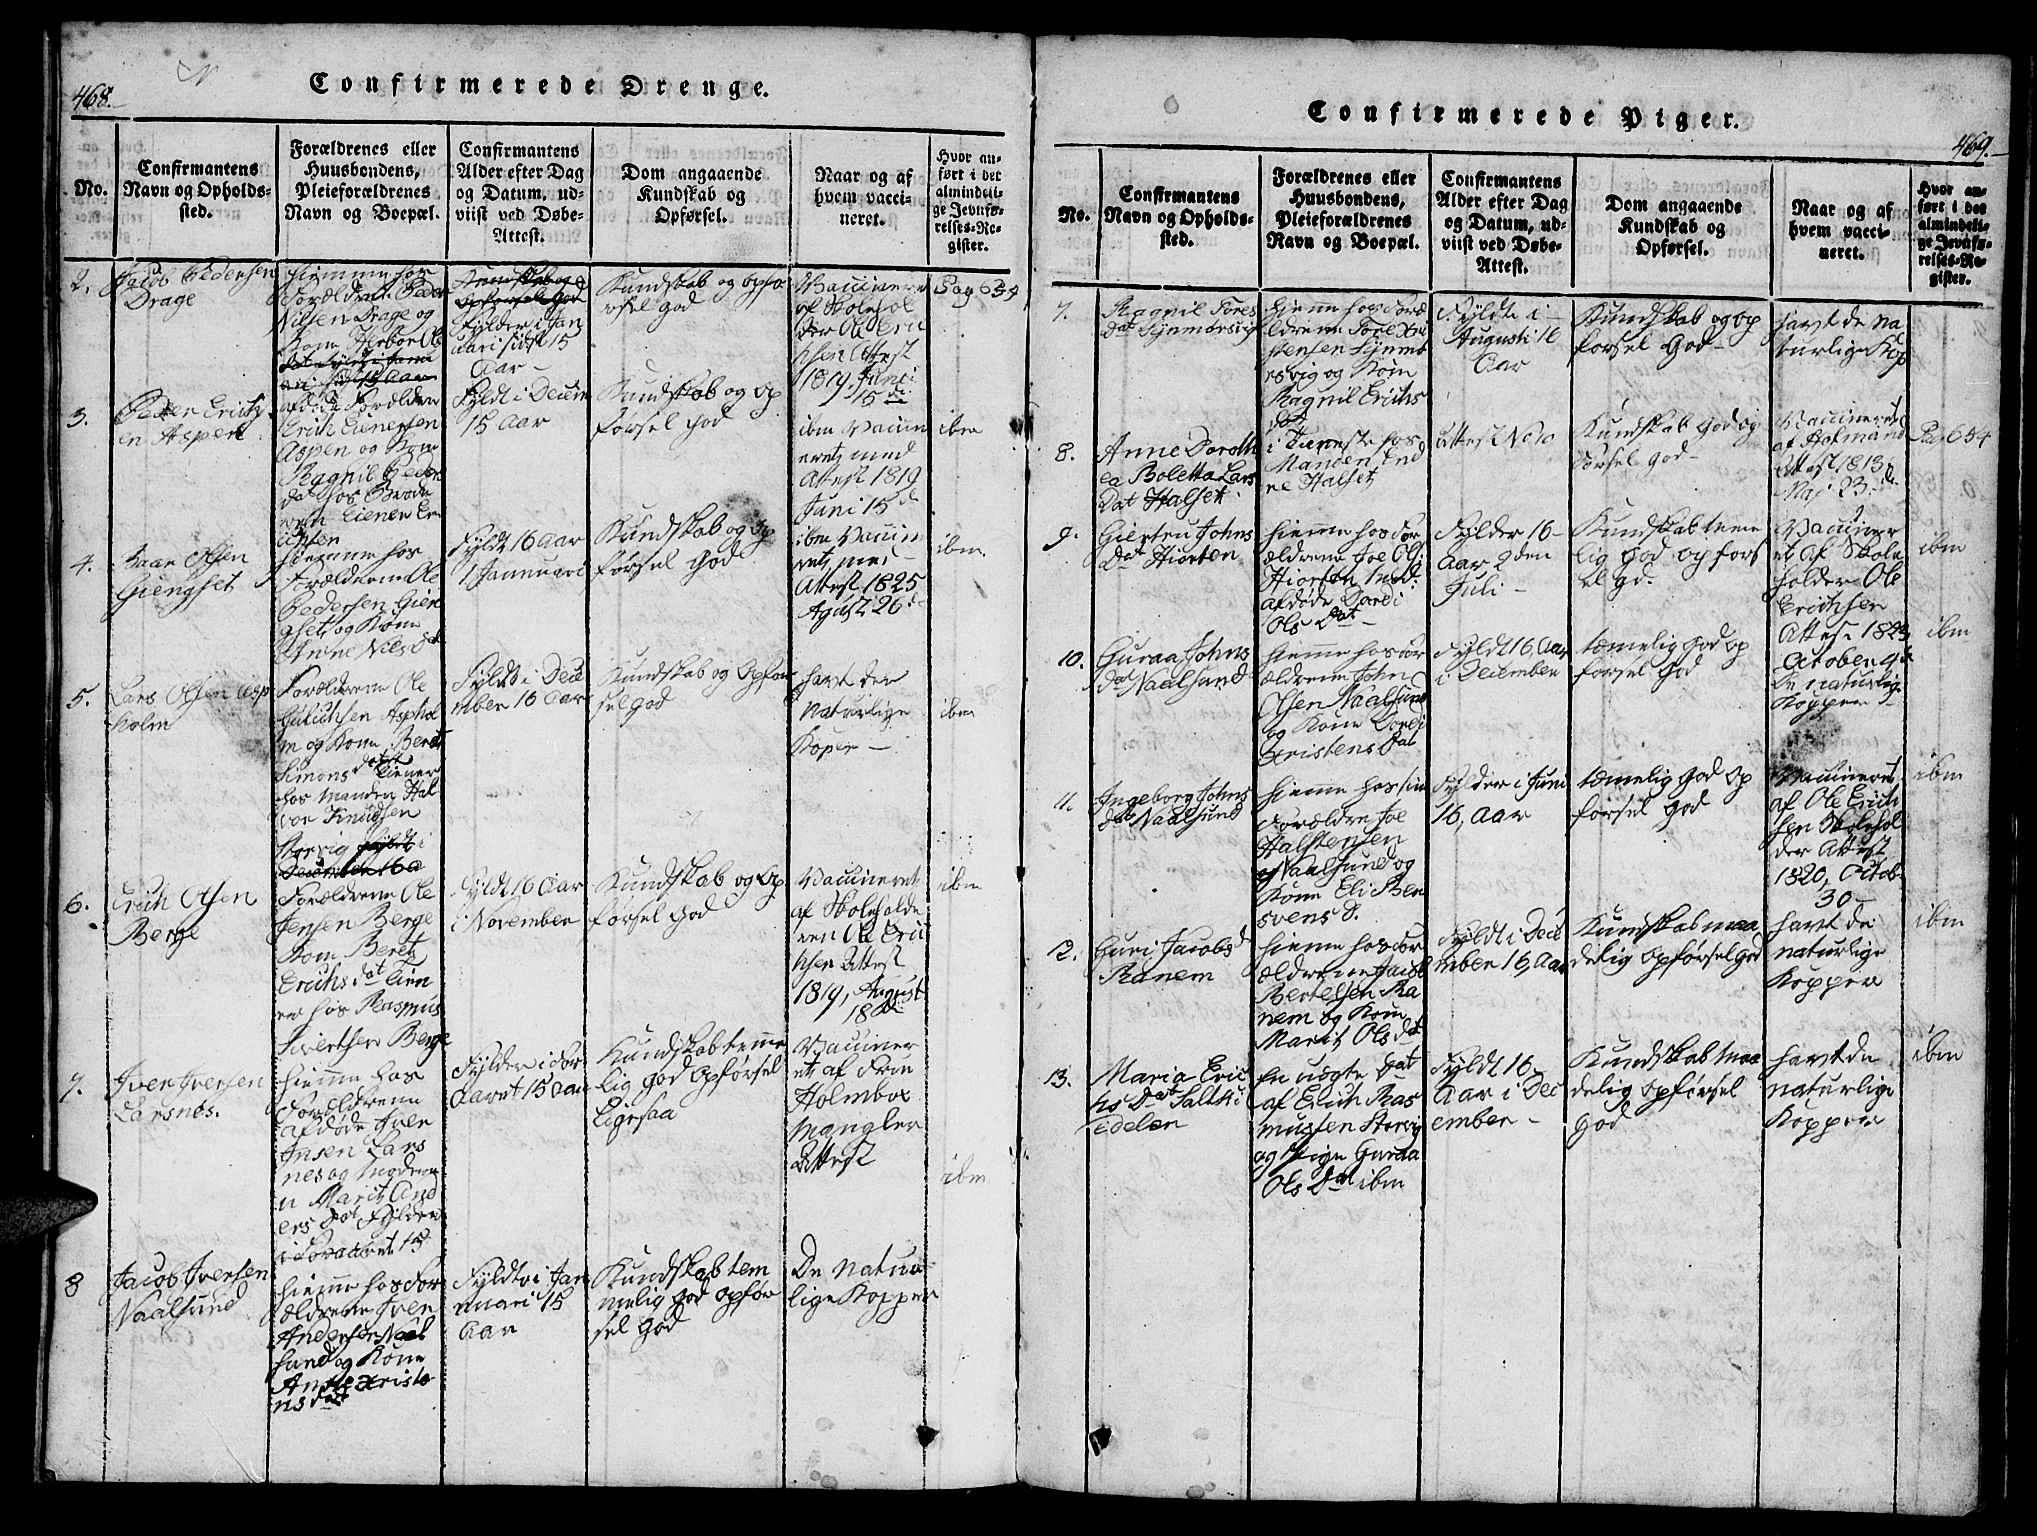 468.
Confirmerede Drenge.
No.
Confirmantens
Navn og Opholds-
sted.
Forældrenes eller
Huusbondens,
Pleieforældrenes
Navn og Boepæl.
Confirmantens
Alder efter Dag
og Datum, ud-
viist ved Døbe-
Attest.
Dom angaaende
Kundskab og
Opførsel.
Naar og af
hvem vacci-
neret.
Hvor an-
ført i det
almindeli-
ge Jevnfø-
relses-Re-
gister.
2.
Jacob Pedersen
Drage
hiemme hos
Forældrene Peder
Nilsen Drage og
Kone
Kundskab og
opførsel God
Fylder i Jan
uari sidst 15
Aar
Kundskab og opfø
rsel god
Vaccinered
af Skolehol
der Ole Eric
hsen Attest
1819, Juni
15 d.
Pag 654
3.
Peder Erichs
en Aspen
afdøde Forældre
Erich Eienersen
Aspen og Kone
Ragnil Peders
dat hos Brode
ren Eiener Er
ichsen
Fyldt i Decem
15 Aar
Kundskab og Op
førsel god
ibm Vaccin
eret, med
Attest 1819
Juni 15 d
ibm
4.
Olsen
Giengset
hiemme hos
Forældrene Ole
Pedersen Gien
gset og Kone
Anne Nils dat
Fyldt 16 Aar
1 Januari
Kundskab og Op
førsel God
ibm Vaccin
eret, med
Attest 1825
Agust 26 d
ibm
5.
Lars Olsen Asp
holm
Forældrene Ole
Asphol
m og Kone Berit
Simons dat tiener
hos Manden Hal
vor Knudsen
Storvig fyldt i
December 16 A
Fyldt i Dece
mber 16 Aar
Kundskab og Opfør
sel god
havt der
Naturlige
Koper
ibm
6.
Erich Olsen
Berge
Forældrene Ole
Jensen Berge
Kone Berit
Erichs dat tien
er hos Rasmus
Sivertsen Berge
Fyldt 16 Aar
i November
Kundskab og Op
førsel God
Vaccineret
af Skoleholde
ren Ole Eric
hsen Attest
1819, August
18 d.
ibm
7.
Iver Iversen
Larsnes.
hiemme hos
Forældrene
afdøde Iver
Jnsen Lars
nes og Modere
n Marit And
ers Dat Fylder
i Foraaret 15
Fylder i For
Aaret 15 Aar
Kundskab temme
lig god Opførsel
Ligesaa
Vacciner
et af Frue
Holmboe
Mangler
Attest
ibm
8
Jacob Iversen
Naalsund
hiemme hos For
ældrene Iver
Andersen Naal
sund og Kone
Anne Christe
ns dat
Fyldte i Jan
nuari 15
Aar
Kundskab tem
melig god opfør
sel God
De Natur
lige Kopper
Confirmerede Piger.
469.
No.
Confirmantens
Navn og Opholds-
sted.
Forældrenes eller
Huusbondens,
Pleieforældrenes
Navn og Boepæl.
Confirmantens
Alder efter Dag
og Datum, ud-
viist ved Døbe-
Attest.
Dom angaaende
Kundskab og
Opførsel.
Naar og af
hvem vacci-
neret.
Hvor an-
ført i det
almindeli-
ge Jevnfø-
relses-Re-
gister.
7.
Ragnil Tores
dat Synmørsvig
hiemme hos Foræ
ldrene Tore Xri
stensen Synmø
rsvig og Kone
Ragnil Erichs
dat
Fyldte i
Augusti 16
Aar
Kundskab og op
førsel God
havt de Na
turlige Kop
8.
Anne Doroth
ea Boletta Lars
Dat Halset
i tieneste hos
Manden End
re Halset
Attest No 10
Kundskab God og
førsel god
Vaccineret
af Hofmand
Attest 1813
Maj 23 d.
Pag 654
9.
Giertru Johns
Dat Hiorten
hiemme hos For
ældrene Joe Ols
Hiorten Med
afdøde Dordi
Ols Dat
Fylder 16
Aar 2den
Juli
Kundskab teme
lig god og førs
el gd.
Vacciner
et af Skole
holder Ole
Erichsen
Attest 1823
October 4 d
ibm
10.
Guraa Johns
dat Naalsund
hiemme hos For
ældrene John
Olsen Naalsund
og Kone Dordi
Xristens Dat
Fyldt 16 Aar
i December
temelig god op
førsel God
De naturlig
Kopper
ibm
11.
Ingeborg Johns
dat Naalsund
hiemme hos sin
Forældre Joe
Halstensen
Naalsund og
Kone Eli Ben
svens d.
Fylder i Juni
16, Aar
temelig God Op
førsel God
Vaccineret
af Ole Erich
sen Skolehol
der Attest
1820, Octob
30
ibm
12.
Guri Jacobs d
Ranem
hiemme hos For
ældrene Jacob
Bertelsen Ra
nem og Kone
Marit Ols dat
Fyldt i Dece
mber 16, Aar
Kundskab maa
delig opførsel god
havt de
naturlige
Kopper
ibm
13.
Maria Eric
hs Dat Saltki
edelen
En uægte Dat
af Erich Ras
mussen Storvig
og Pige Guraa
Ols Dat ibm
Fyldt 16
Aar i Dec
ember
Kundskab maa
delig opførsel
God
havt de
naturlige
Kopper
ibm